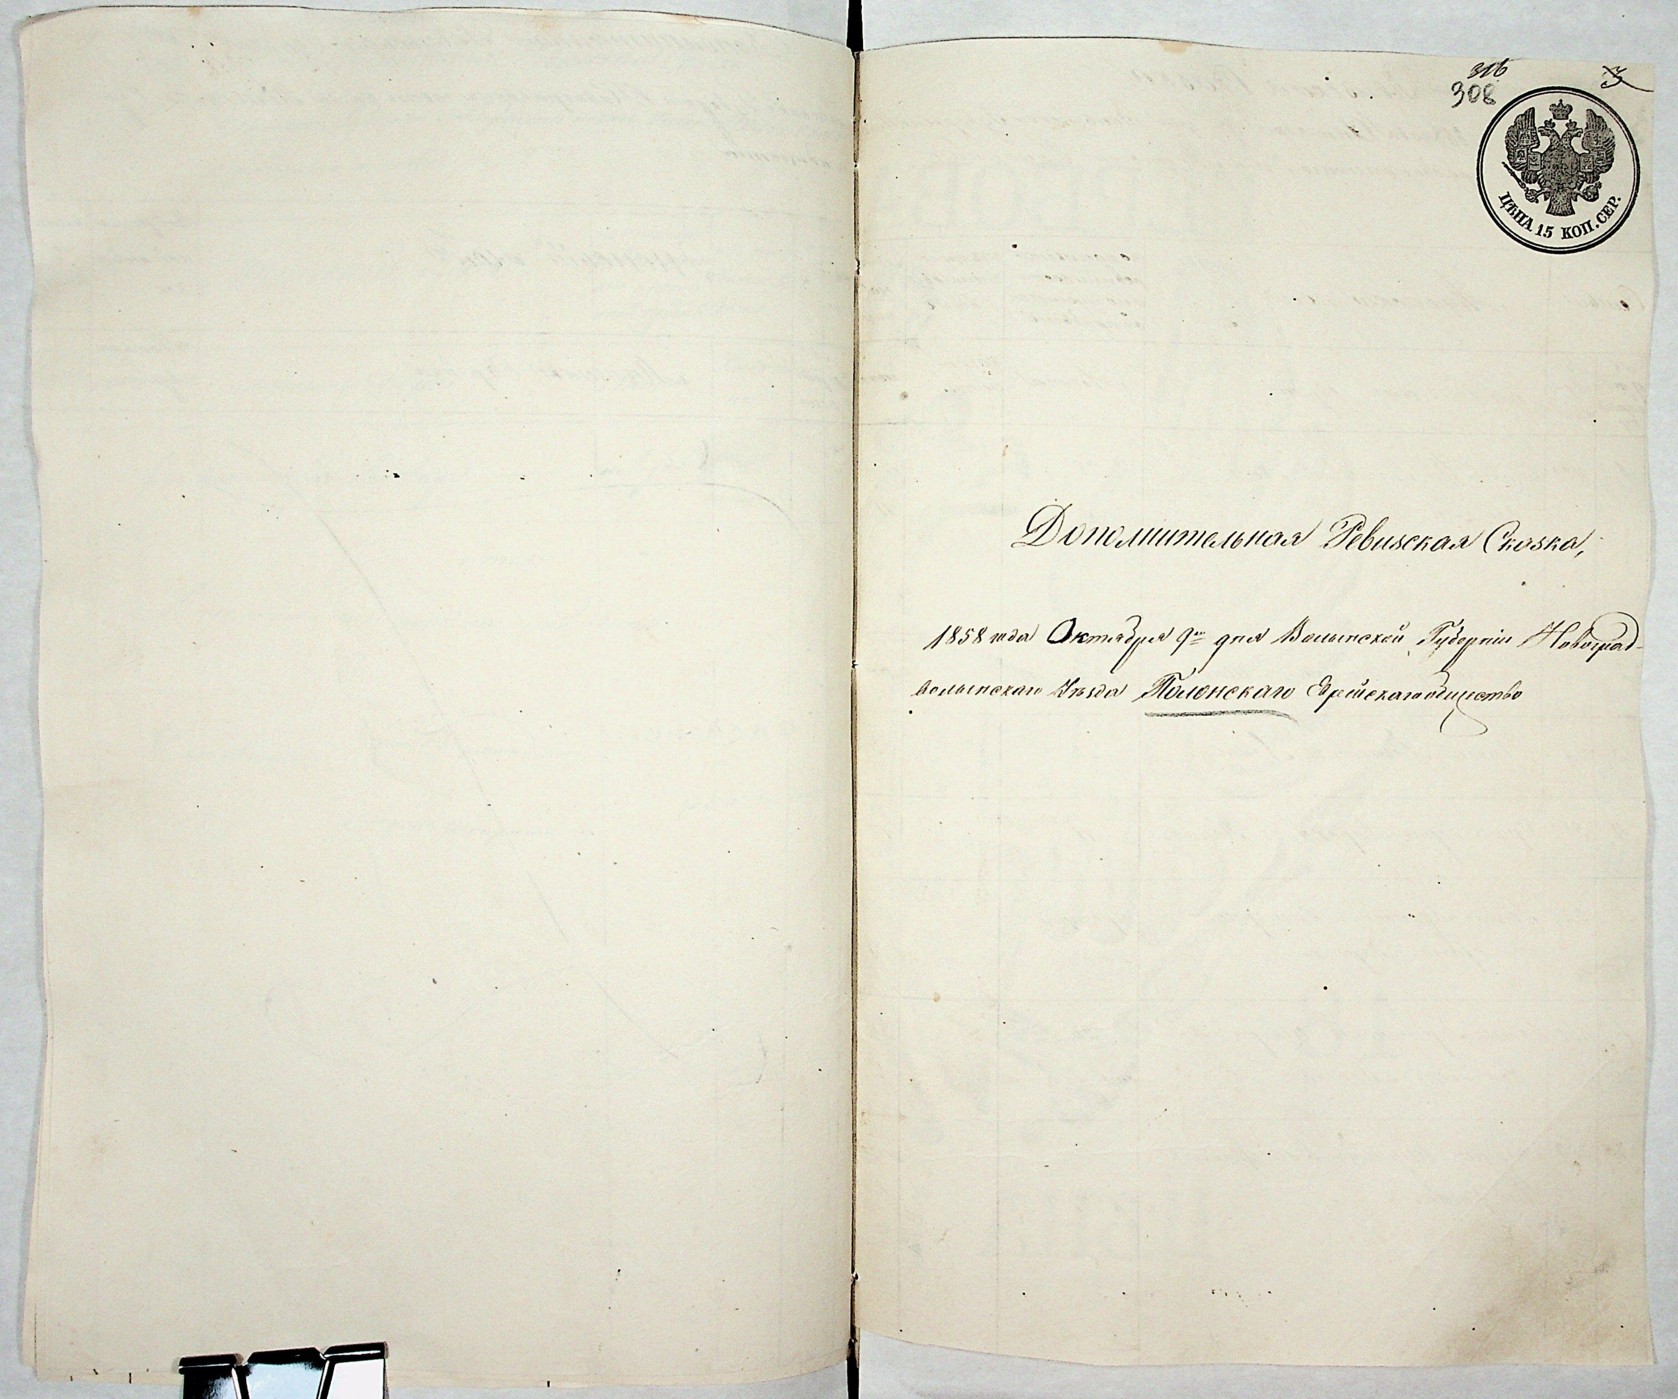 316
308
3
ЦѢНА 15 КОП. СЕР.
Дополнительная Ревизская Сказка,
1858 года Октября 9го дня Волынской Губерніи Новоград-
волынскаго Уѣзда Полонскаго Еврейскаго общество